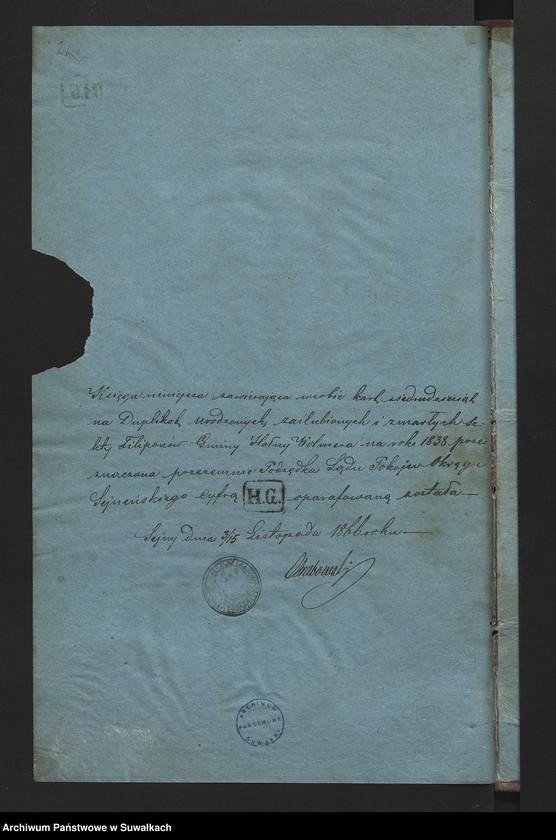 2
H.G.
Księga niniejsza zawierająca w sobie kart siedmdziesiąt
na Duplikat urodzonych, zaślubionych i zmarłych Se-
kty Filiponów Gminy Hołny Wolmera na rok 1838 prze-
znaczona przezemnie Podsędka Sądu Pokoju Okręgu
Sejneńskiego cyfrą H.G. oparafowaną została
Sejny dnia 3/15 Listopada 1866 roku
ARCHIWUM
PAŃSTWOWE
SUWAŁKI
Archiwum Państwowe w Suwałkach